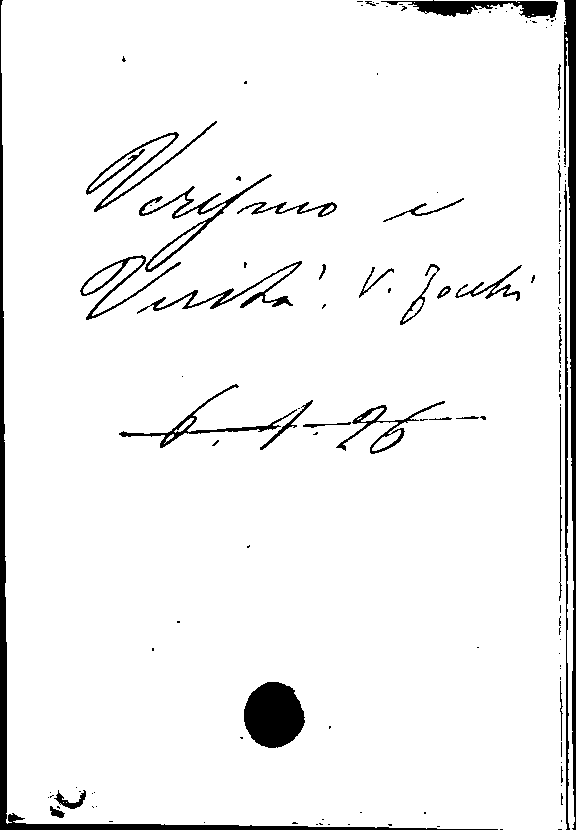 Verismo e
Verità. V. Zocchi
6. 1. 26